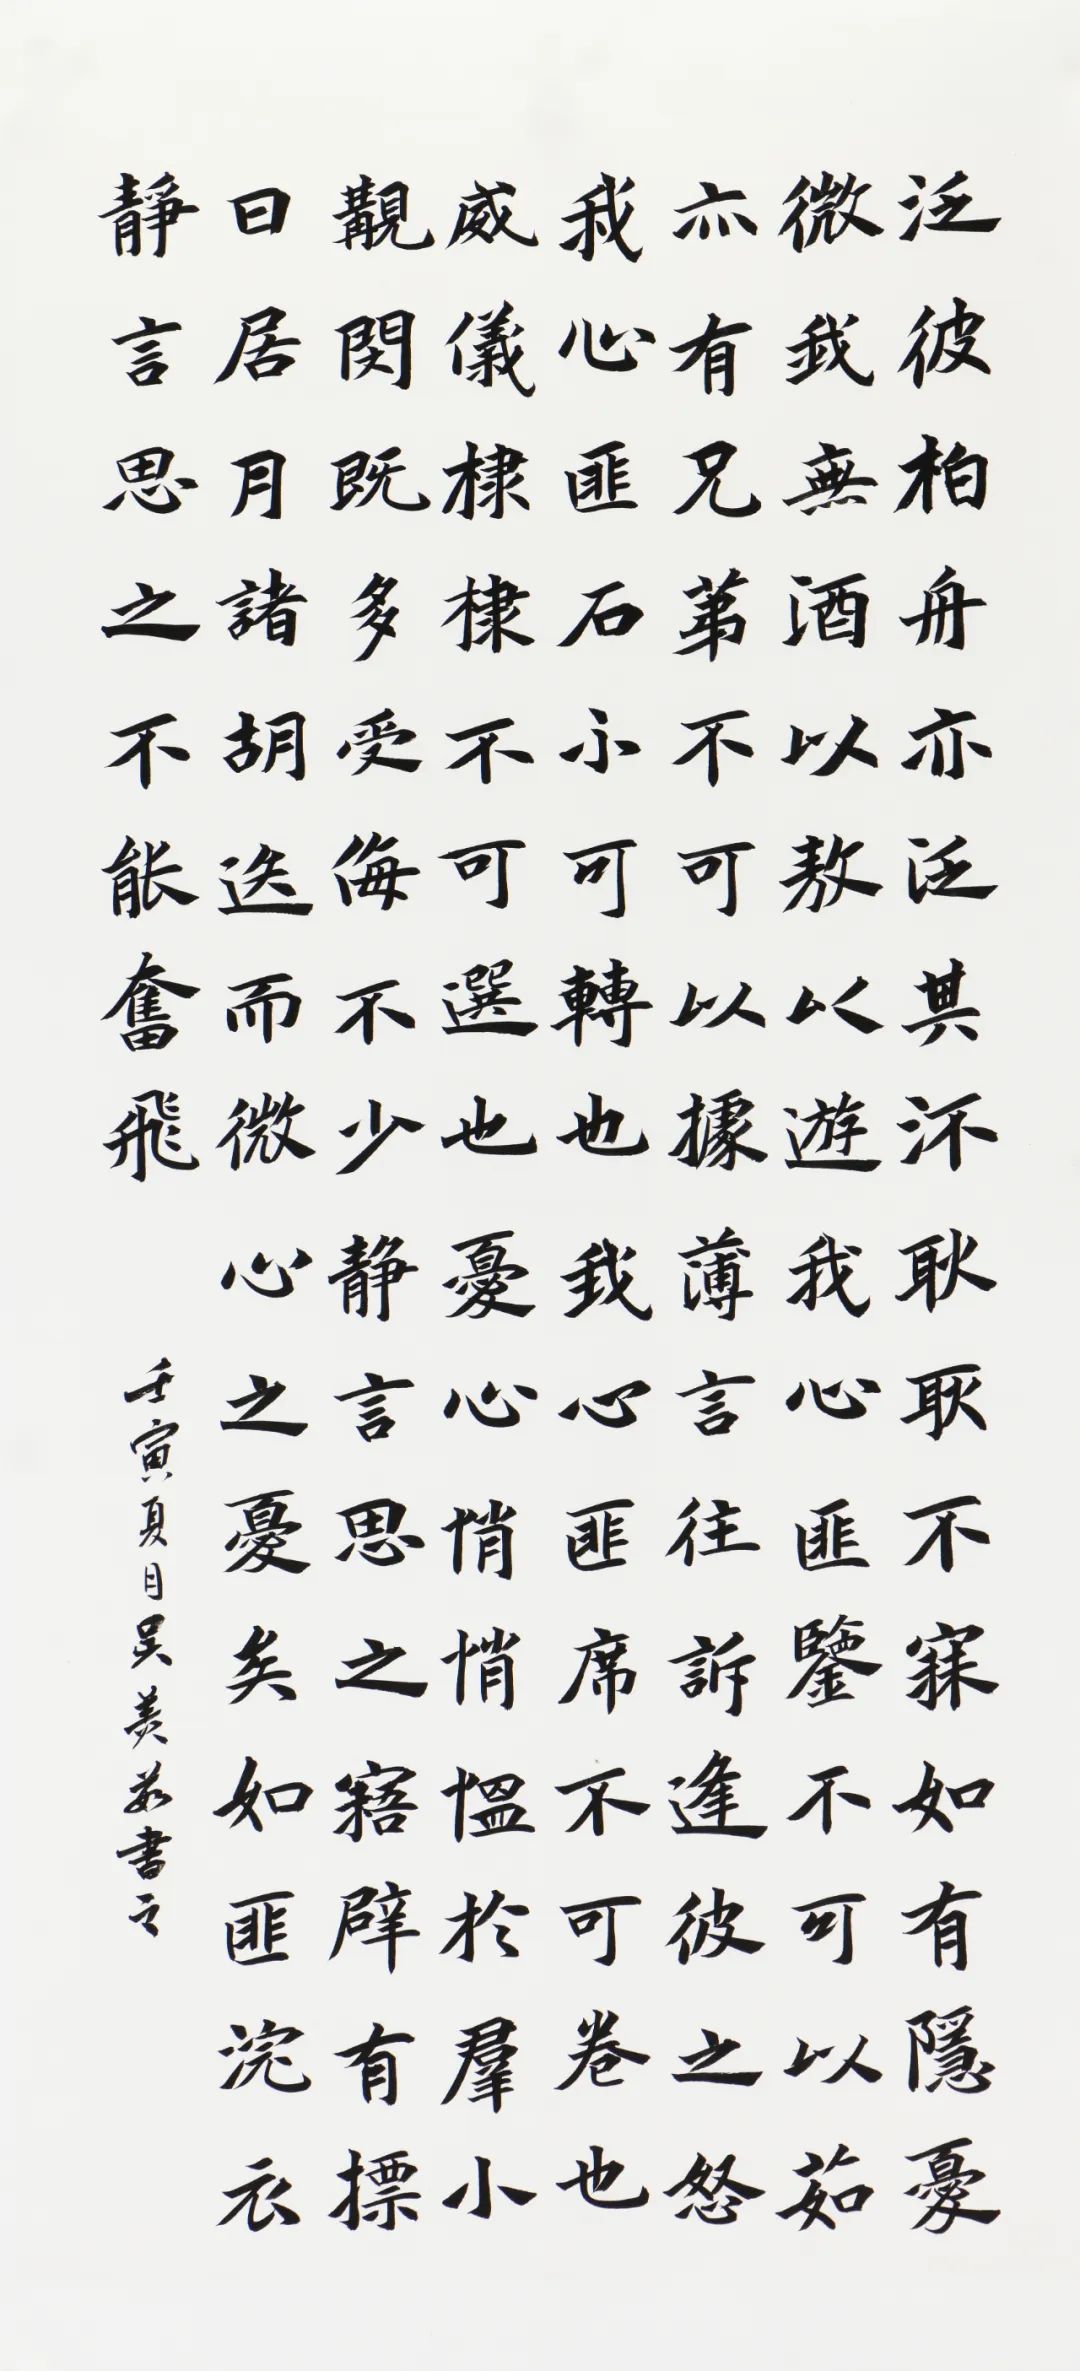 泛彼柏舟亦泛其流耿耿不寐如有隱憂
微我無酒以敖以遊我心匪鑒不可以茹
亦有兄苐不可以據薄言往訴逢彼之怒
我心匪石不可轉也我心匪席不可卷也
威儀棣棣不可選也憂心悄悄愠於羣小
覯閔既多受侮不少静言思之寤辟有摽
日居月諸胡迭而微心之憂矣如匪浣衣
靜言思之不能奮飛
壬寅夏月吴美茹書之